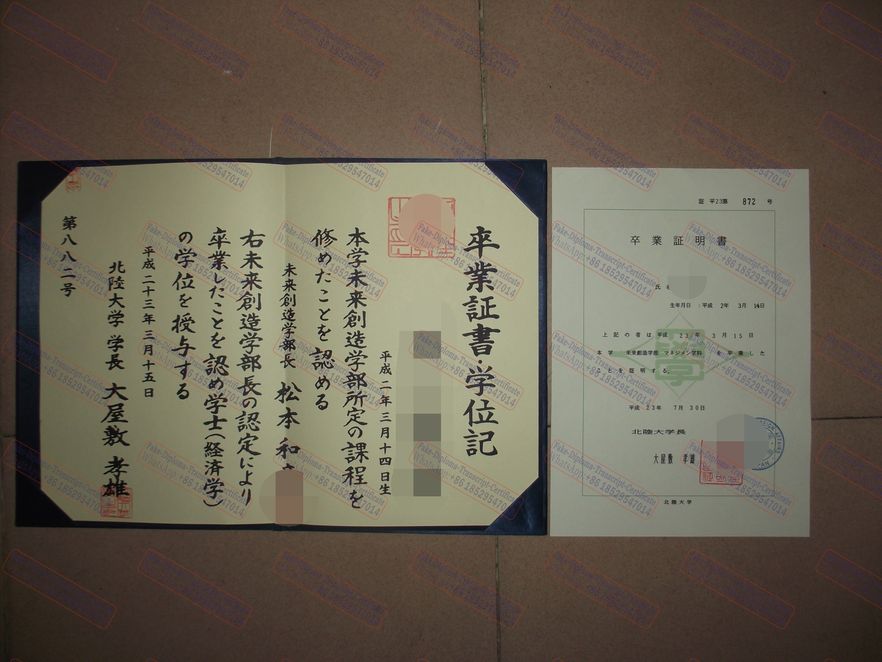 卒業証書・学位記
平成二年三月十四日生
本学未来創造学部所定の課程を
修めたことを認める
未来創造学部長 松本和
右未来創造学部長の認定により
卒業したことを認め学士(経済学)
の学位を授与する
平成二十三年三月十五日
北陸大学 学長 大屋敷 孝雄
第八八二号
証 平23第 872 号
卒業証明書
氏名
生年月日:平成 2年 3月 14日
上記の者は平成 23年 3月15日
本学 未来創造学部 マネジメント学科 を卒業した
ことを証明する。
平成 23年 7月30日
北陸大学長
大屋敷 孝雄
北陸大学
Fake-Diploma-Transcript-Certificate
WhatsApp:+86 18529547014